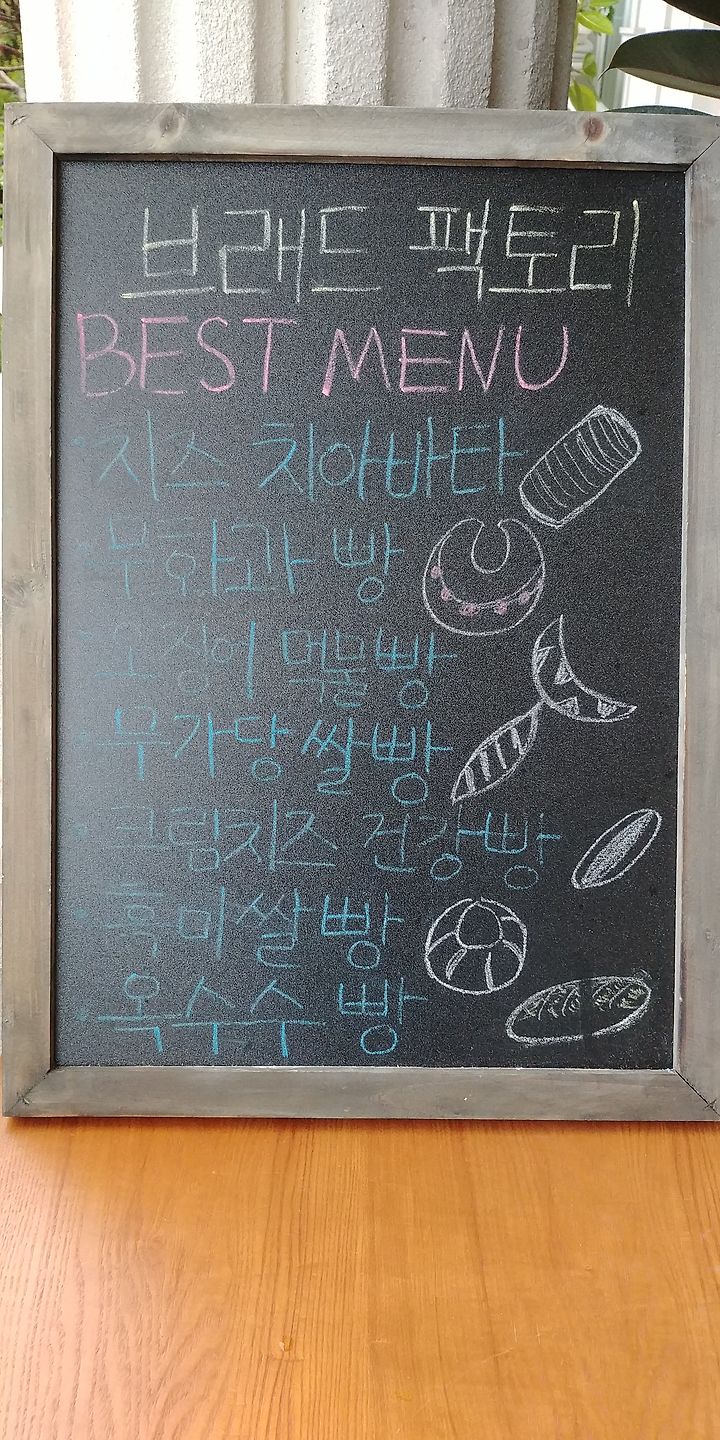 브래드 팩토리
BEST MENU
· 치즈 치아바타
· 무화과 빵
· 오징어 먹물빵
· 무가당 쌀빵
· 크림치즈 건강빵
· 흑미쌀빵
· 옥수수 빵